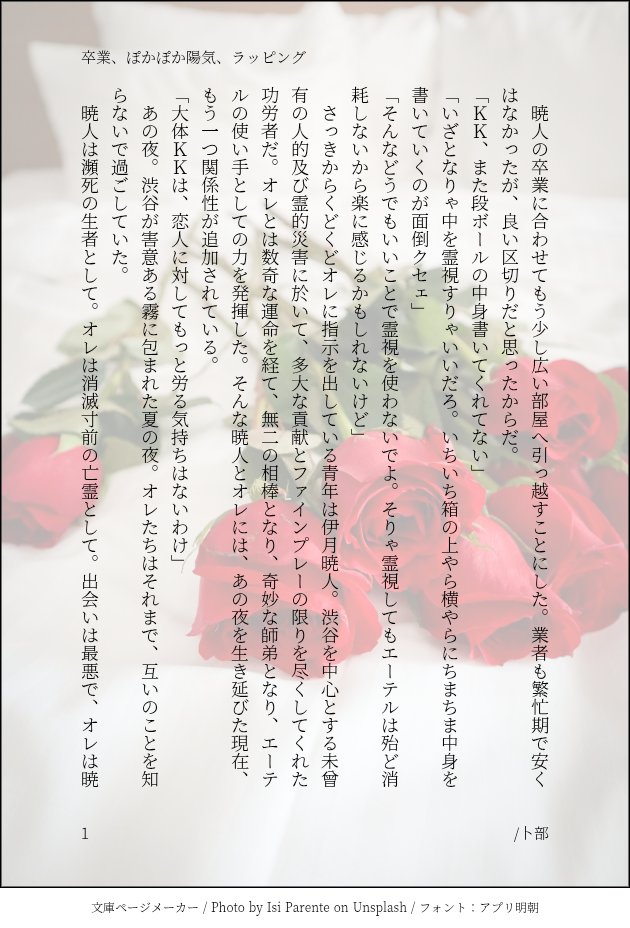 卒業、ぽかぽか陽気、ラッピング
　暁人の卒業に合わせてもう少し広い部屋へ引っ越すことにした。業者も繁忙期で安く
はなかったが、良い区切りだと思ったからだ。
「ＫＫ、また段ボールの中身書いてくれてない」
「いざとなりゃ中を霊視すりゃいいだろ。いちいち箱の上やら横やらにちまちま中身を
書いていくのが面倒クセェ」
「そんなどうでもいいことで霊視を使わないでよ。そりゃ霊視してもエーテルは殆ど消
耗しないから楽に感じるかもしれないけど」
　さっきからくどくどオレに指示を出している青年は伊月暁人。渋谷を中心とする未曾
有の人的及び霊的災害に於いて、多大な貢献とファインプレーの限りを尽くしてくれた
功労者だ。オレとは数奇な運命を経て、無二の相棒となり、奇妙な師弟となり、エーテ
ルの使い手としての力を発揮した。そんな暁人とオレには、あの夜を生き延びた現在、
もう一つ関係性が追加されている。
「大体ＫＫは、恋人に対してもっと労る気持ちはないわけ」
　あの夜。渋谷が害意ある霧に包まれた夏の夜。オレたちはそれまで、互いのことを知
らないで過ごしていた。
　暁人は瀕死の生者として。オレは消滅寸前の亡霊として。出会いは最悪で、オレは暁
1
/卜部
文庫ページメーカー / Photo by Isi Parente on Unsplash / フォント：アプリ明朝